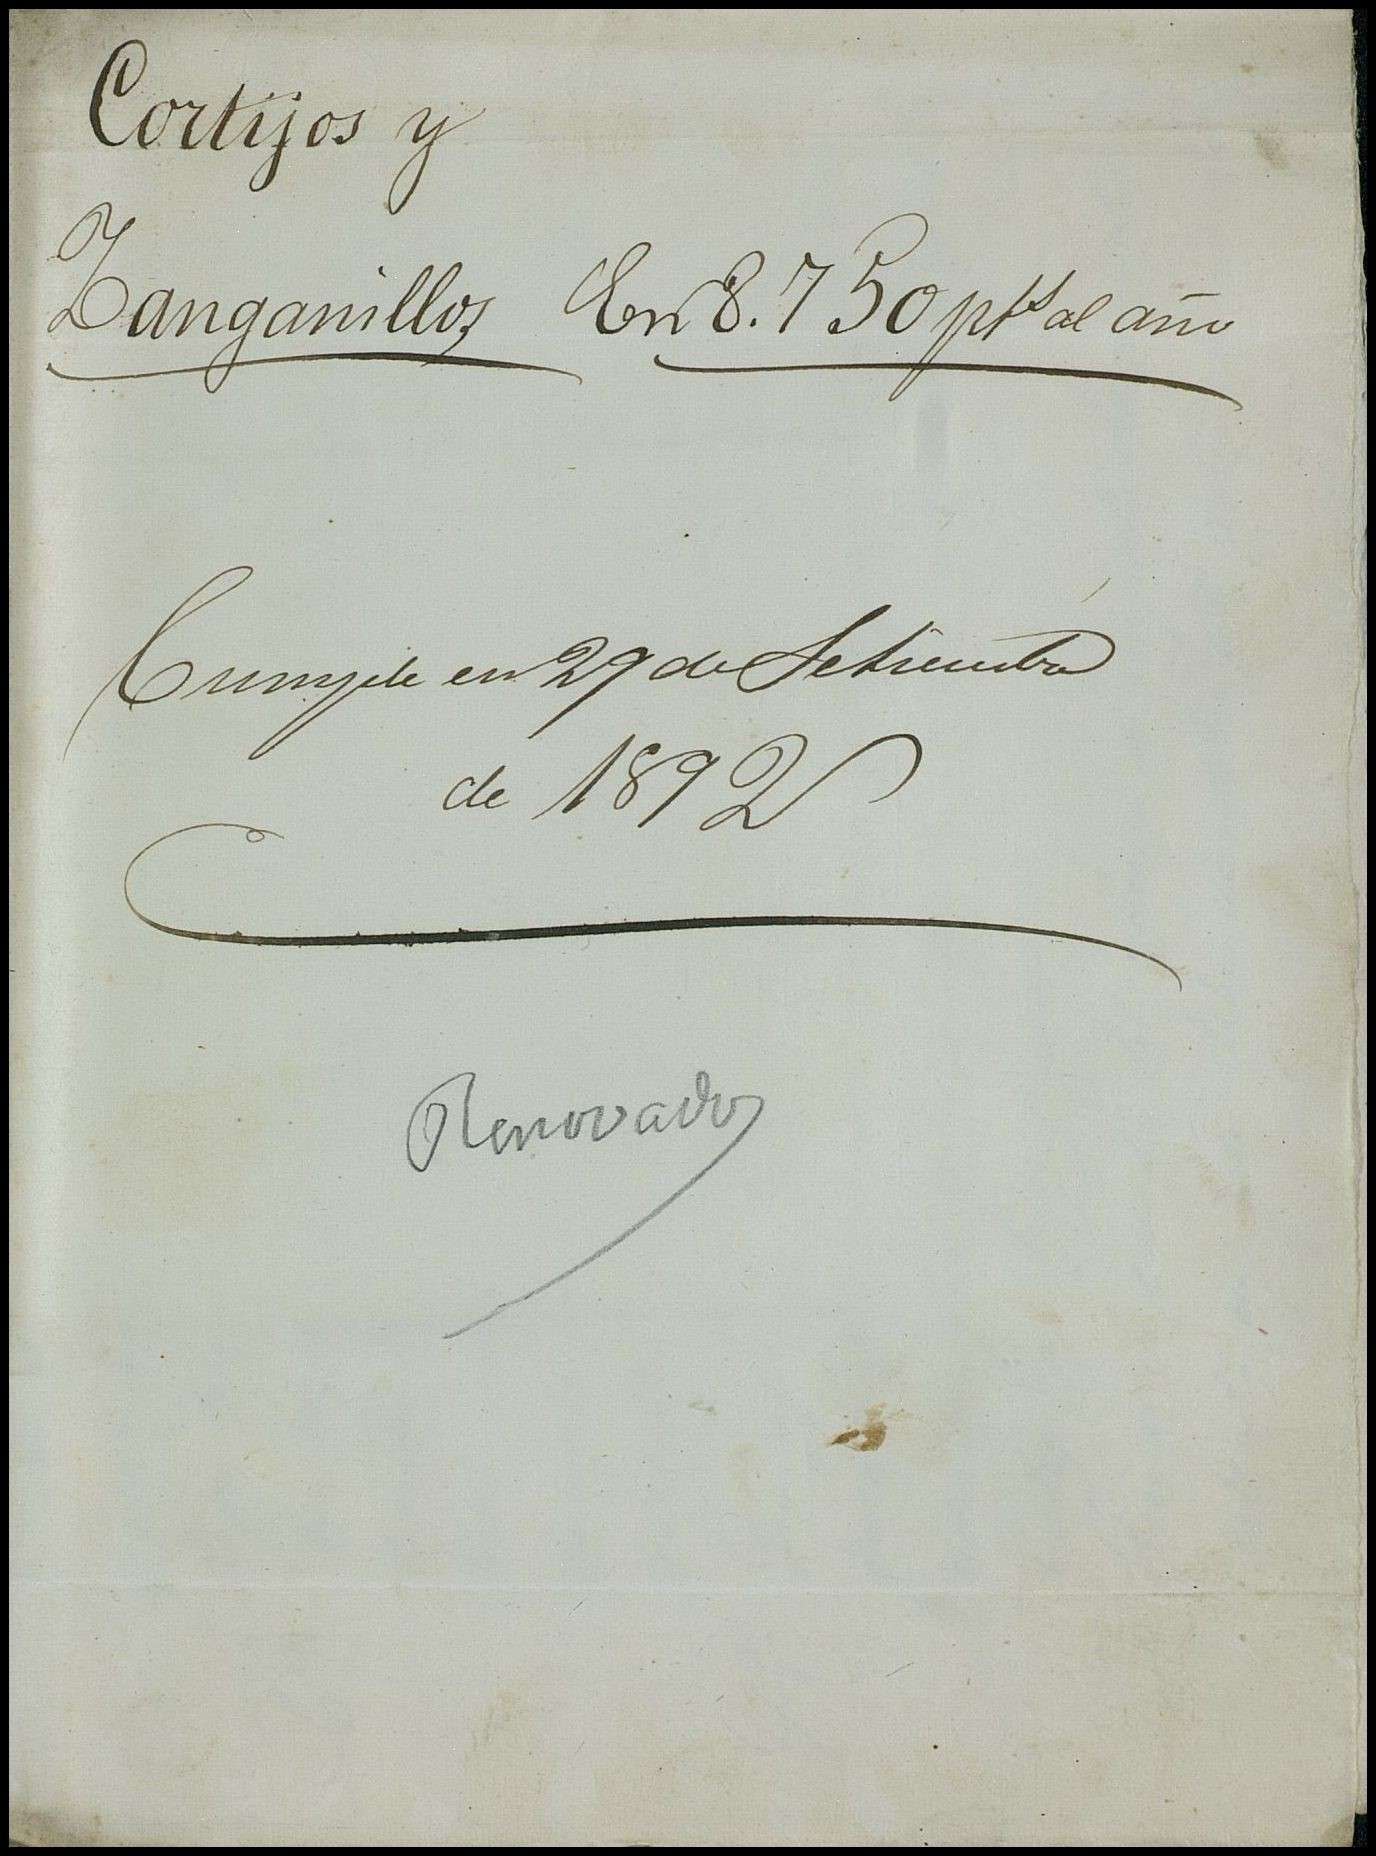 Cortijos y
Zanganillos En 8.750 pts al año
Cumple en 29 de Setiembre
de 1892
Renovado